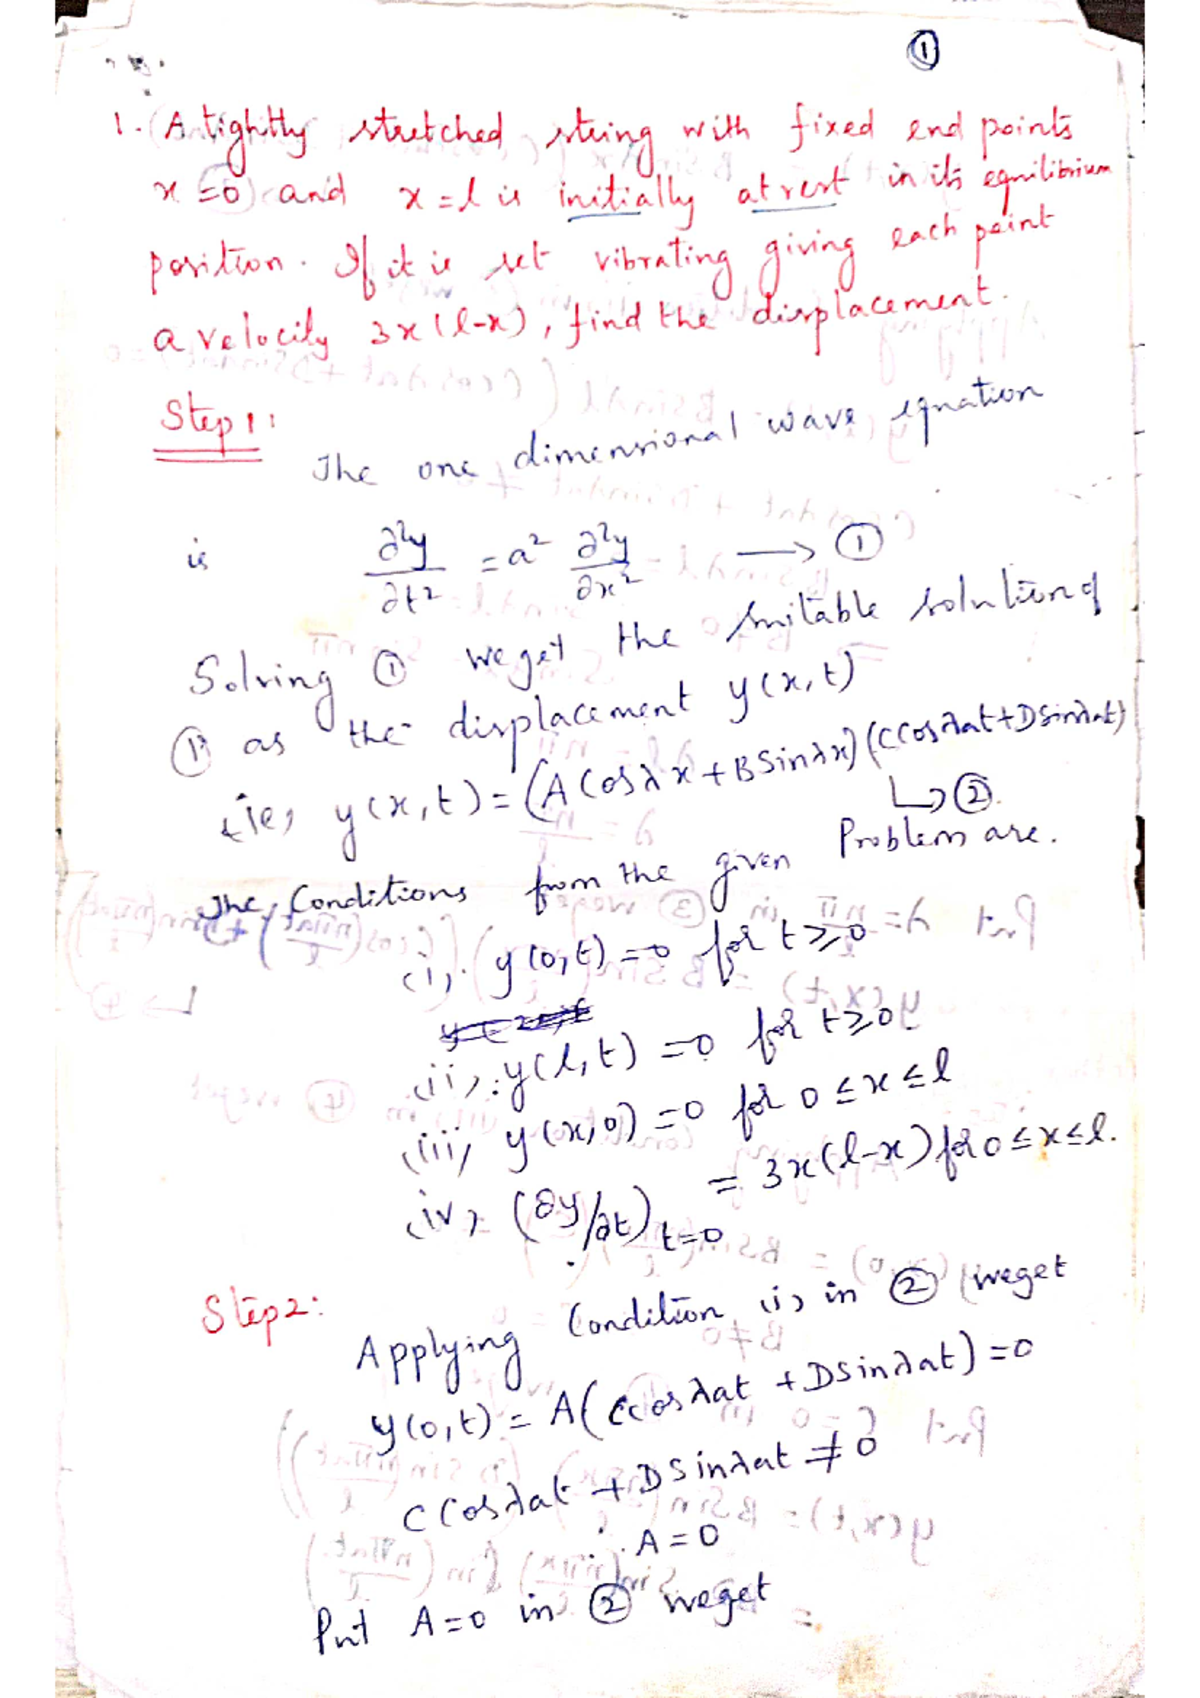 ①
1. A tightly stretched string with fixed end points
x=0 and x=l is initially at rest in its equilibrium
position. If it is set vibrating giving each point
a velocity 3x(l-x), find the displacement.
Step 1:
The one dimensional wave equation
is ∂²y/∂t² = a² ∂²y/∂x² → ①
Solving ① we get the suitable solution of
① as the displacement y(x,t)
(ie) y(x,t) = (A Cos λx + B Sin λx) (C Cos λat + D Sin λat)
↳ ②.
The Conditions from the given Problem are.
(i). y(0,t) = 0 for t ≥ 0
(ii). y(l,t) = 0 for t ≥ 0
(iii) y(x,0) = 0 for 0 ≤ x ≤ l
(iv) (∂y/∂t) t=0 = 3x(l-x) for 0 ≤ x ≤ l.
Step 2:
Applying Condition (i) in ② we get
y(0,t) = A(C Cos λat + D Sin λat) = 0
C Cos λat + D Sin λat ≠ 0
∴ A = 0
Put A = 0 in ② we get